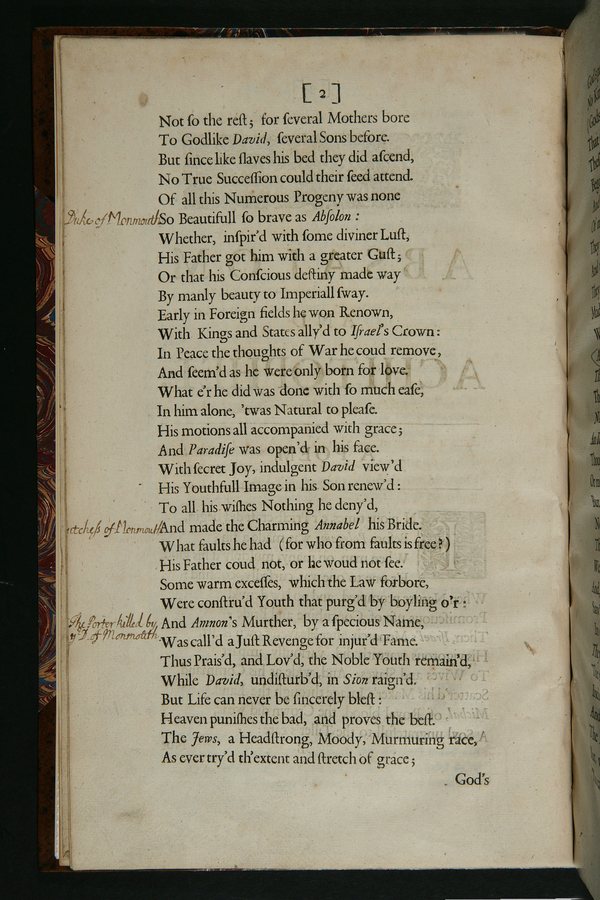 [ 2 ]
Not ſo the reſt; for ſeveral Mothers bore
To Godlike David, ſeveral Sons before.
But ſince like ſlaves his bed they did aſcend,
No True Succeſſion could their ſeed attend.
Of all this Numerous Progeny was none
Duke of Monmouth
So Beautifull ſo brave as Abſolon :
Whether, inſpir'd with ſome diviner Luſt,
His Father got him with a greater Guſt;
Or that his Conſcious deſtiny made way
By manly beauty to Imperiall ſway.
Early in Foreign fields he won Renown,
With Kings and States ally'd to Iſrael's Crown:
In Peace the thoughts of War he coud remove,
And ſeem'd as he were only born for love.
What e'r he did was done with ſo much eaſe,
In him alone, 'twas Natural to pleaſe.
His motions all accompanied with grace;
And Paradiſe was open'd in his face.
With ſecret Joy, indulgent David view'd
His Youthfull Image in his Son renew'd:
To all his wiſhes Nothing he deny'd,
utcheſs of Monmouth
And made the Charming Annabel his Bride.
What faults he had (for who from faults is free?)
His Father coud not, or he woud not ſee.
Some warm exceſſes, which the Law forbore,
Were conſtru'd Youth that purg'd by boyling o'r:
The Porter killed by
yᵉ D. of Monmouth
And Amnon's Murther, by a ſpecious Name,
Was call'd a Juſt Revenge for injur'd Fame.
Thus Prais'd, and Lov'd, the Noble Youth remain'd,
While David, undiſturb'd, in Sion raign'd.
But Life can never be ſincerely bleſt:
Heaven puniſhes the bad, and proves the beſt.
The Jews, a Headſtrong, Moody, Murmuring race,
As ever try'd th'extent and ſtretch of grace;
God's